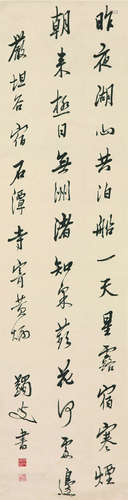 昨夜湖山共泊船一天星露宿寒煙
朝来極目無洲渚知采蘋花何處邊
嚴坦叔宿石潭寺寄黃炳 書